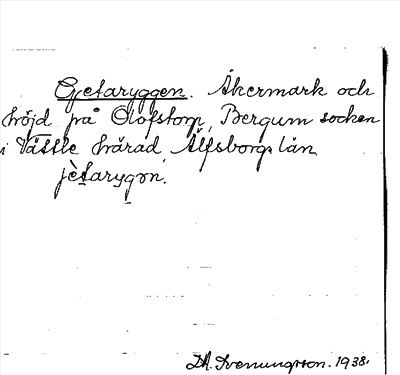 Gjetaryggen. Åkermark och
höjd på Olofstorp, Bergum socken
i Vättle härad, Älfsborgs län
jètarygən,
M. Svenungsson. 1938.